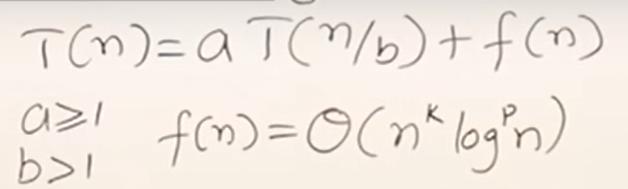 T(n)=aT(n/b)+f(n)
a≥1
b>1
f(n)=Θ(n^k log^p n)